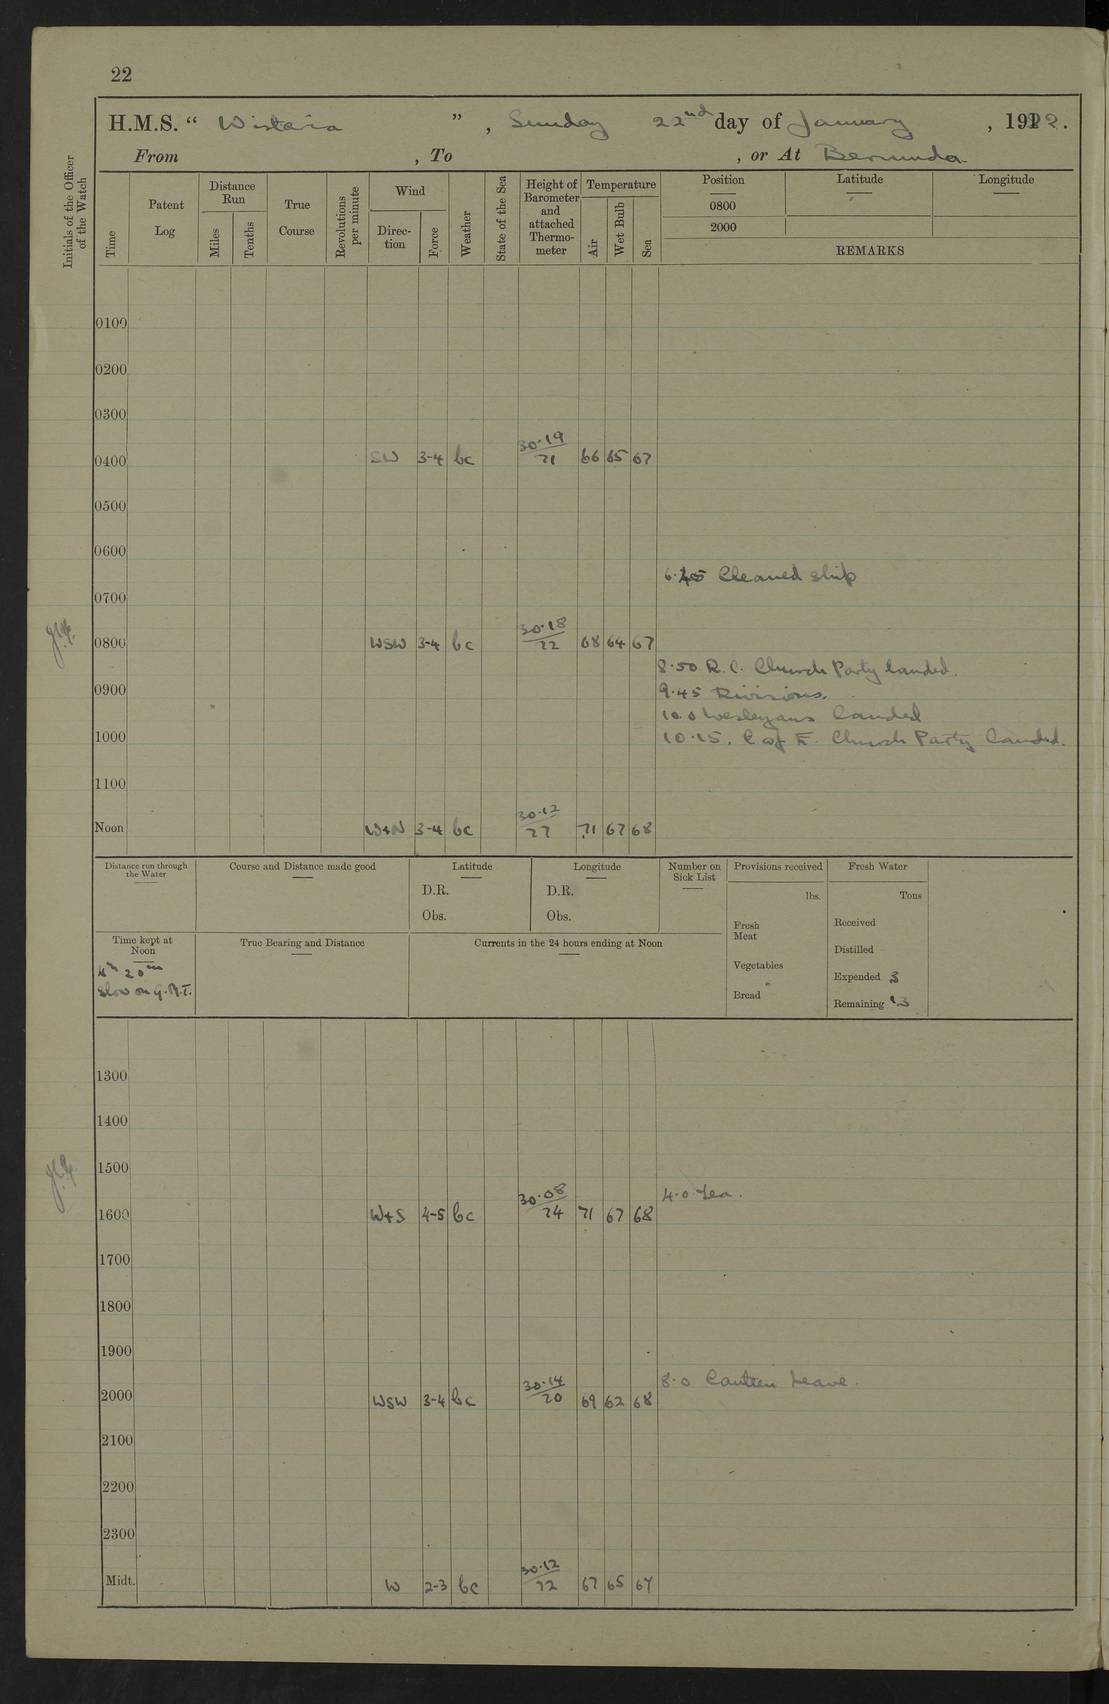 22
H.M.S. “ Wistaria ” , Sunday 22nd day of January , 1922.
From , To , or At Bermuda
Initials of the Officer of the Watch
Time
Patent Log
Distance Run
Miles
Tenths
True Course
Revolutions per minute
Wind
Direction
Force
Weather
State of the Sea
Height of Barometer and attached Thermometer
Temperature
Air
Wet Bulb
Sea
Position
0800
2000
Latitude
Longitude
REMARKS
0100
0200
0300
0400 SW 3-4 bc 30.19/71 66 65 67
0500
0600
6.45 Cleaned ship
0700
0800 WSW 3-4 bc 30.18/72 68 64 67
8.50 R.C. Church Party landed.
0900 9.45 Divisions.
10.0 Wesleyans landed
1000 10.15. C of E. Church Party landed.
1100
Noon W+N 3-4 bc 30.12/77 71 67 68
Distance run through the Water
Course and Distance made good
Latitude
D.R.
Obs.
Longitude
D.R.
Obs.
Number on Sick List
Provisions received
lbs.
Fresh Meat
Vegetables
Bread
Fresh Water
Tons
Received
Distilled
Expended 3
Remaining 13
Time kept at Noon
4h 20m
slow on G.M.T.
True Bearing and Distance
Currents in the 24 hours ending at Noon
1300
1400
1500
4.0 Tea.
1600 W+S 4-5 bc 30.08/74 71 67 68
1700
1800
1900
8.0 Canteen Leave.
2000 WSW 3-4 bc 30.14/70 69 62 68
2100
2200
2300
Midt. W 2-3 bc 30.12/72 67 65 67